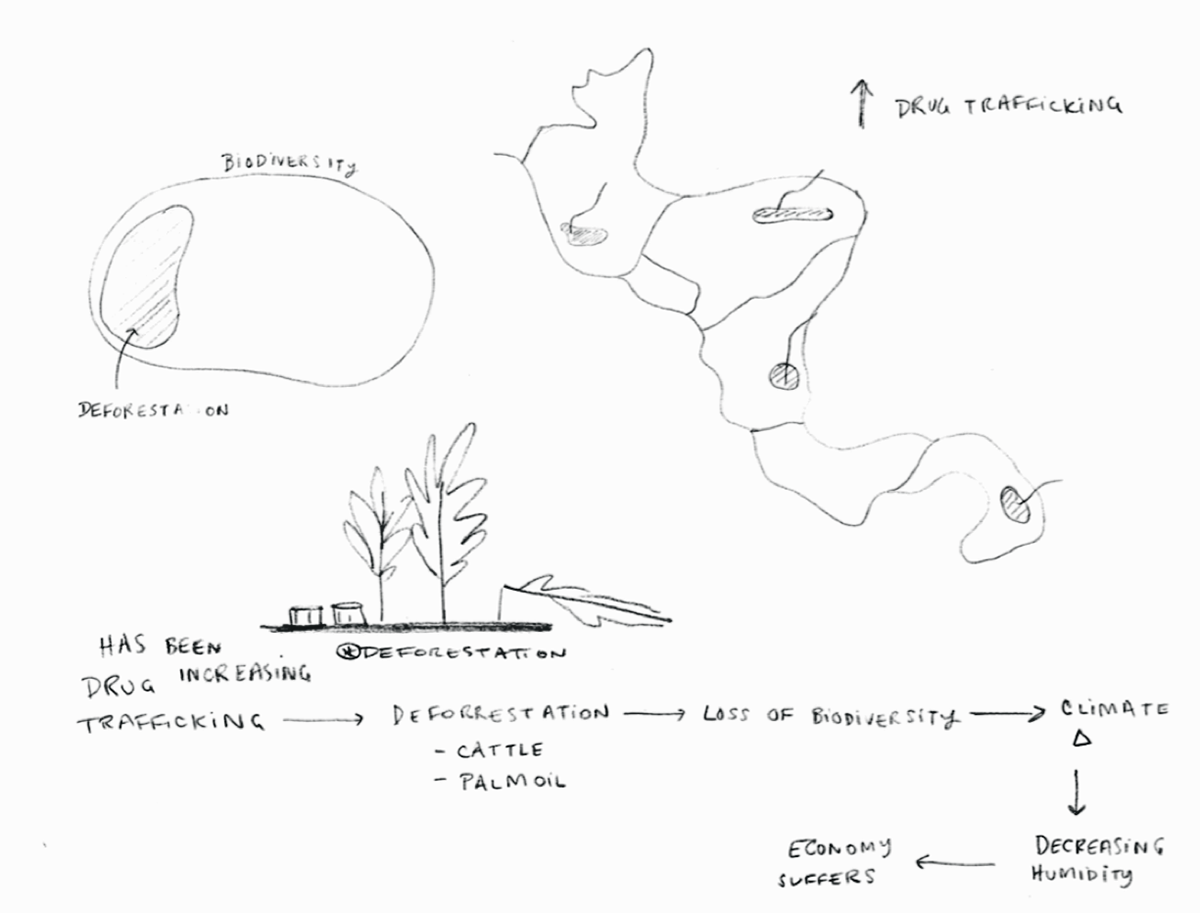 BIODIVERSITY
↑ DRUG TRAFFICKING
DEFORESTATION
⊛DEFORESTATION
HAS BEEN
DRUG INCREASING
TRAFFICKING → DEFORRESTATION → LOSS OF BIODIVERSITY → CLIMATE
- CATTLE
Δ
- PALMOIL
↓
ECONOMY ← DECREASING
SUFFERS HUMIDITY